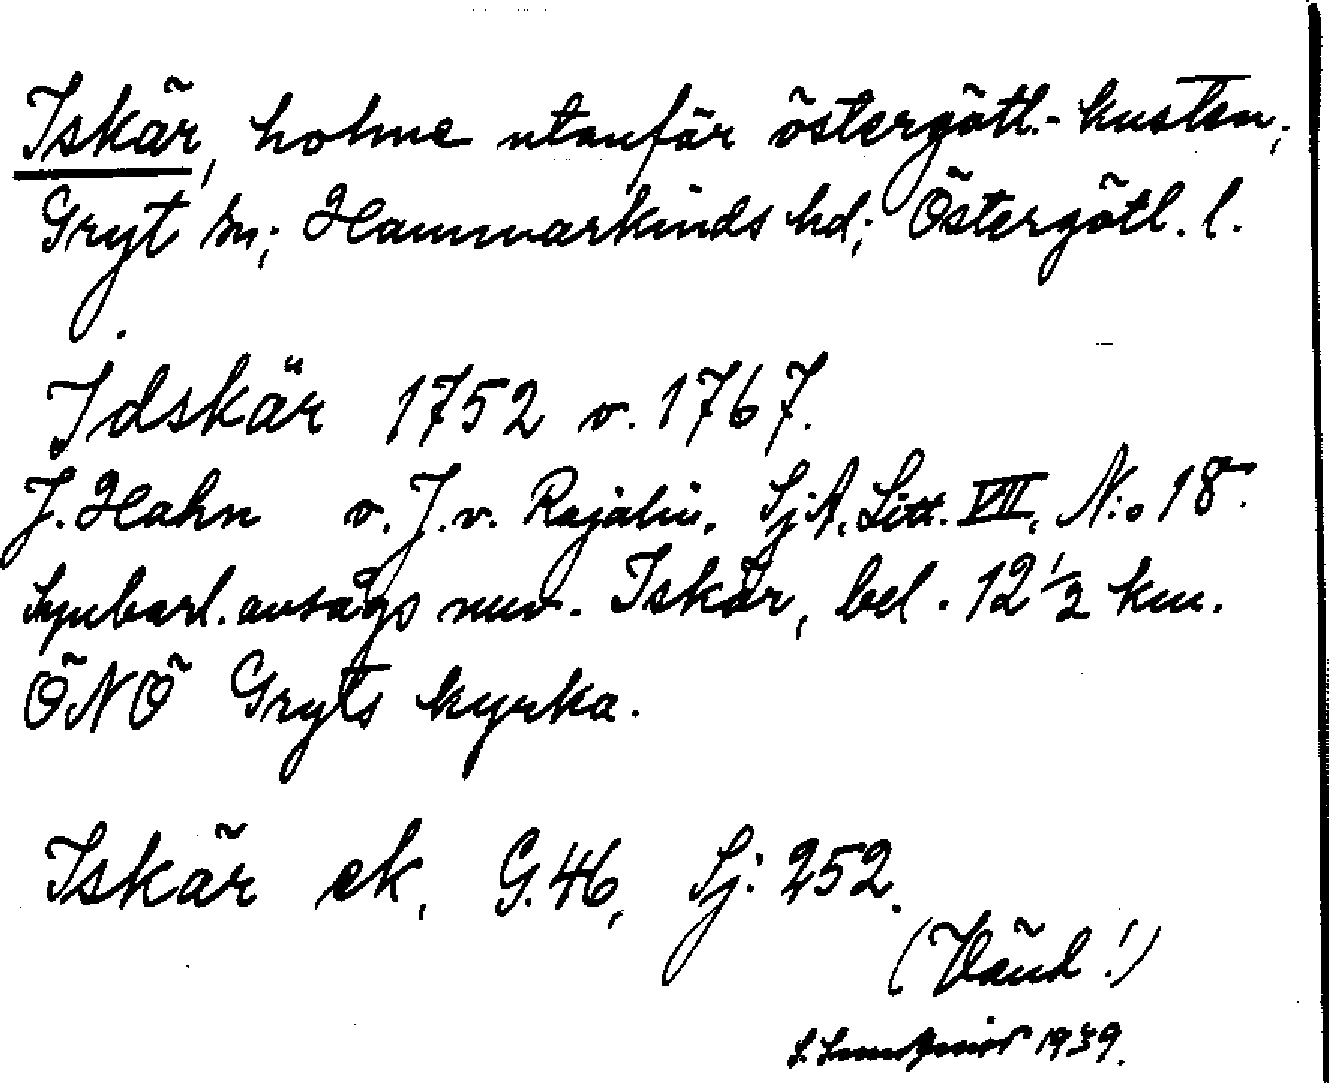 Iskär, holme utanför östergötl.-kusten,
Gryt sn; Hammarkinds hd; Östergötl. l.
Idskär 1752 o. 1767.
J. Hahn o. J. v. Rajalin. Sj.A. Litt. VII, N:o 18.
Synbarl. avsågs nuv. Iskär, bel. 12 1/2 km.
ÖNÖ Gryts kyrka.
Iskär ek, G. 46, Sj: 252.
(Vänd!)
1939.